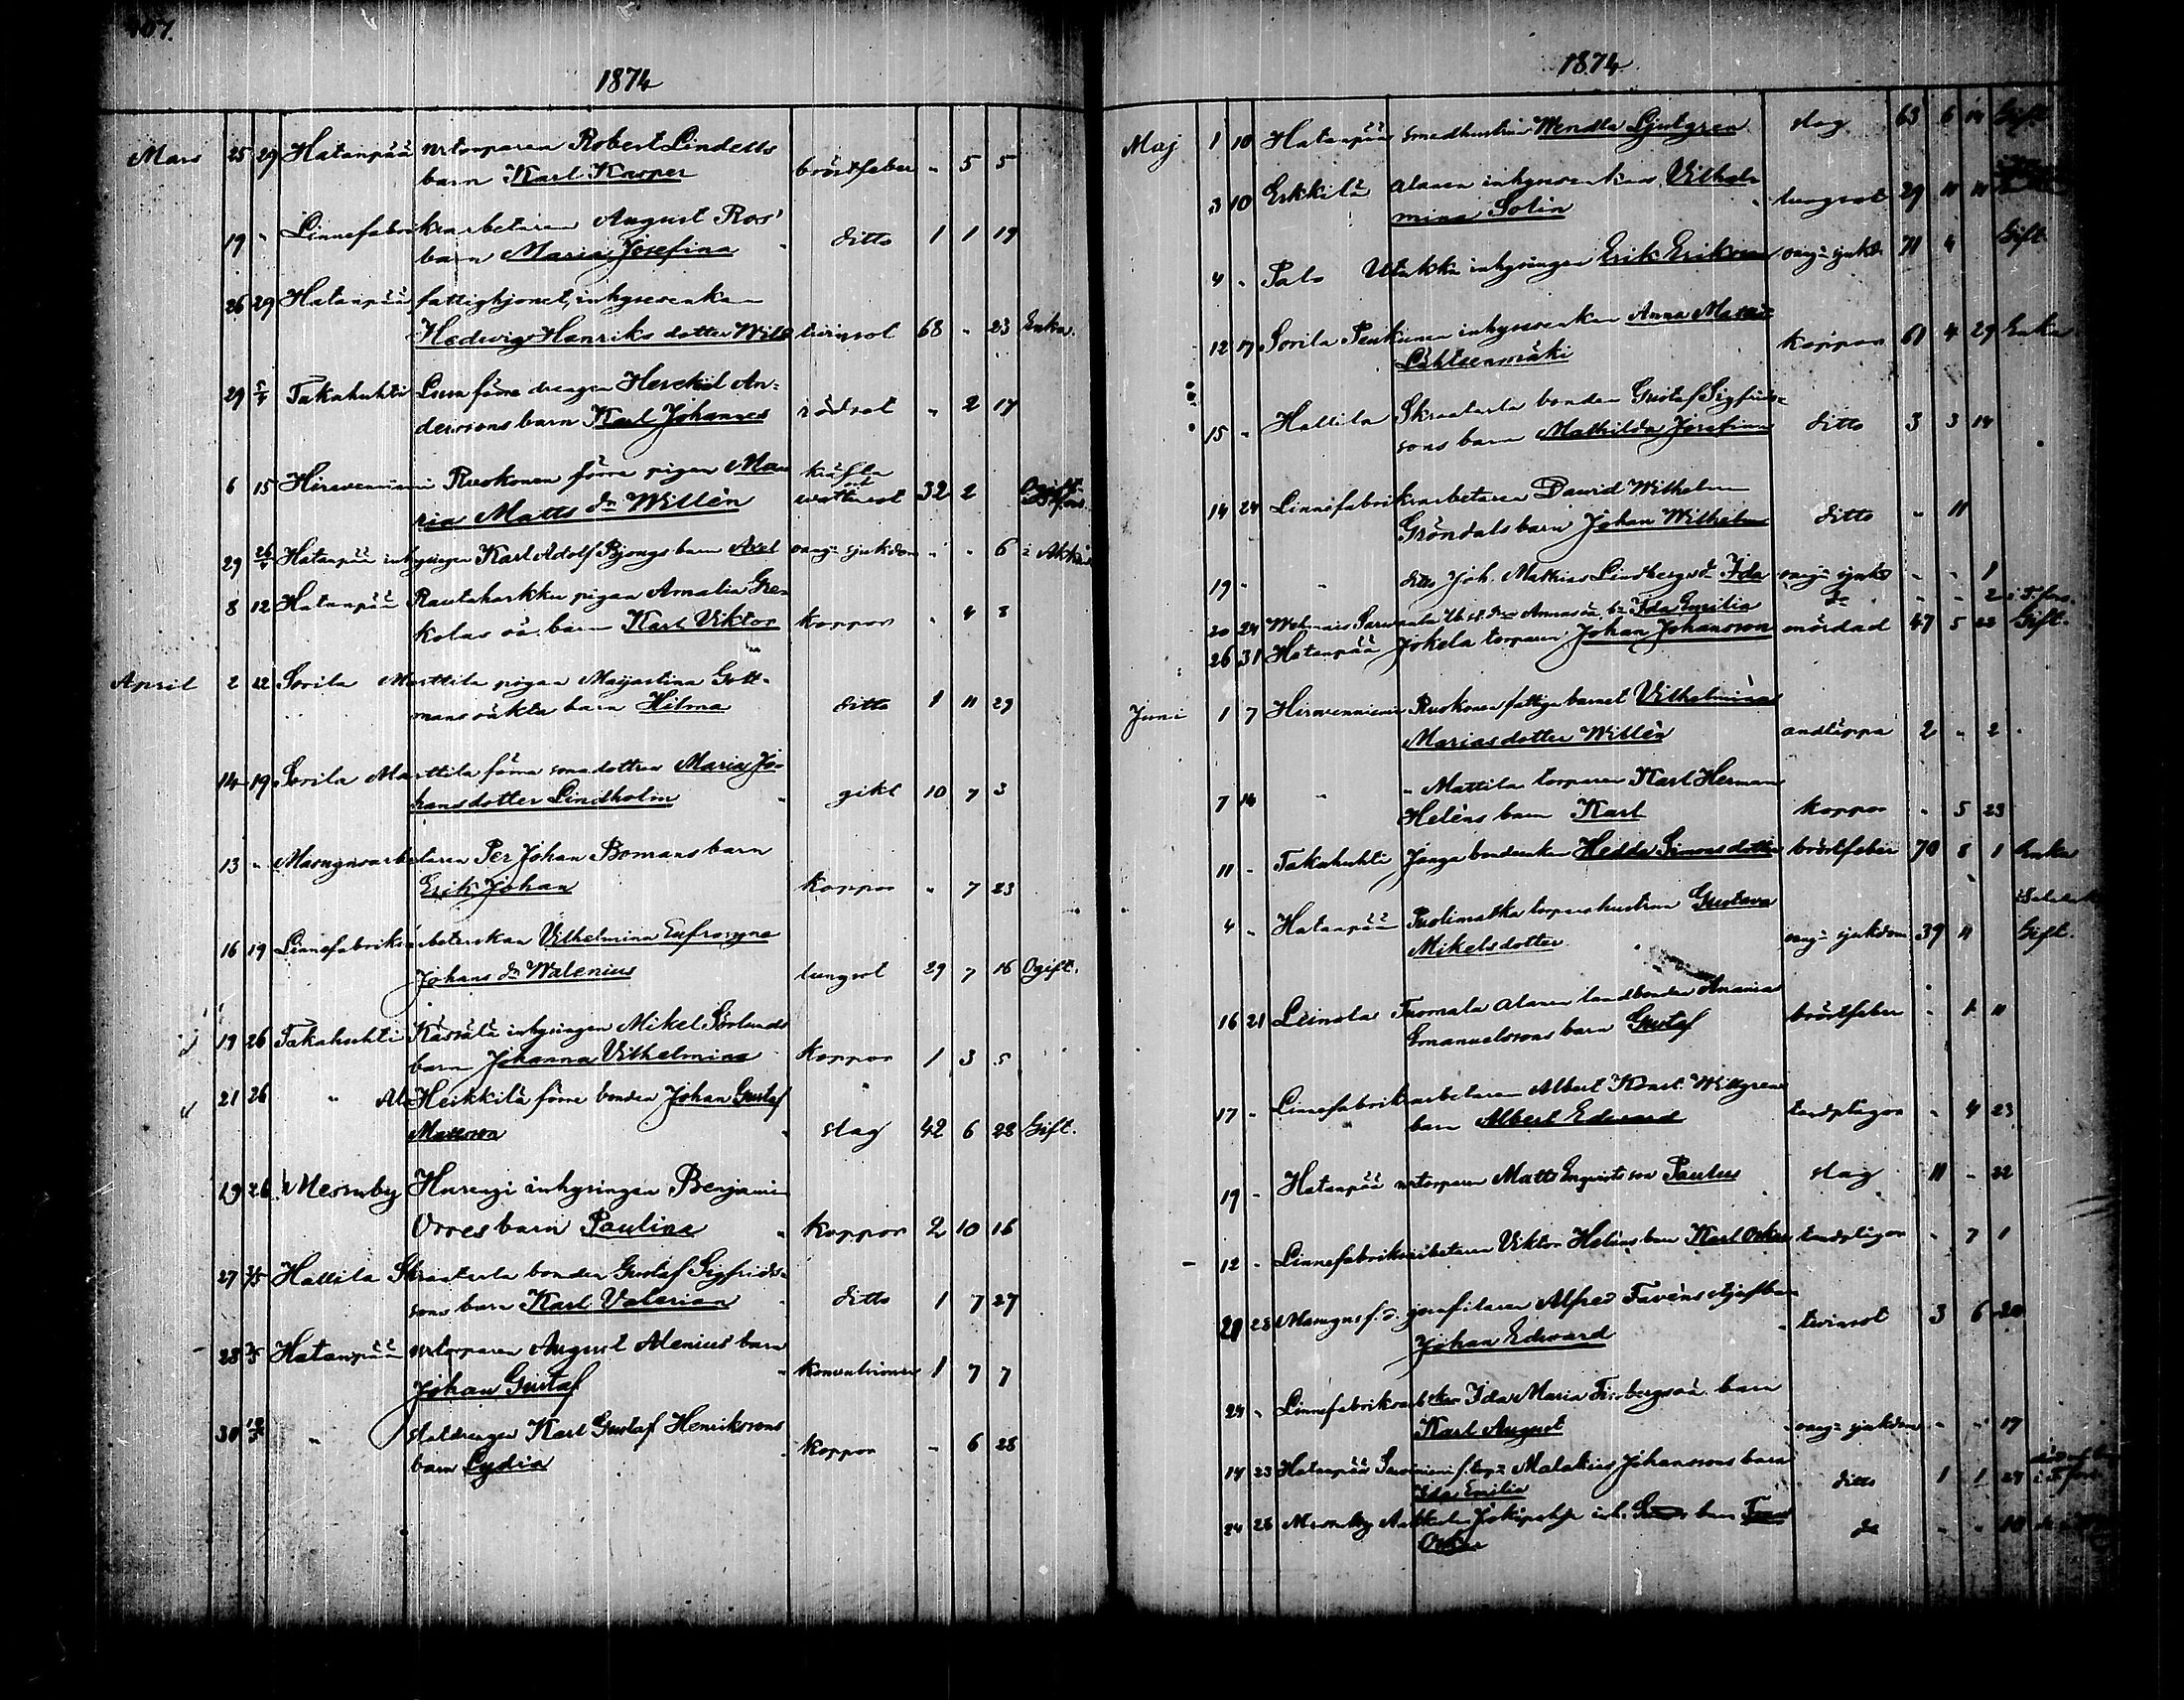 107.
1874
Mars 25 29 Hatanpää nrtorparen Robert Lindells
barn Karl Kasper bröstfeber " 5 5
19 " Linnefabriksarbetaren August Ros'
barn Maria Josefina ditto 1 1 19
26 29 Hatanpää fattighjonet, inhysesenkan
Hedwig Henriks dotter Wilt tvinsot 68 " 23 Enka.
29 5/4 Takahuhti förre drengen Herekiel An-
derssons barn Karl Johannes rödsot " 2 17
6 15 Hirwenniemi Ruskonen förre pigan Ma-
ria Matts dr Willén kräfta och wattusot 32 2 Ogift.
29 26/4 Hatanpää inhysingen Karl Adolf Bjongs barn Axel oang: sjukdom " " 6
8 12 Hatanpää Rautaharkku pigan Amalia Gre-
kolas oä. barn Karl Viktor koppor " 4 8
April 2 12 Sorila Marttila pigan Majastina Gott-
mans oäkta barn Hilma ditto 1 11 29
14 19 Sorila Marttila förre sonadottren Maria Jo-
hansdotter Lindholm gikt 10 7 3
13 " Masugnsarbetaren Per Johan Bomans barn
Erik Johan koppor " 7 23
16 19 Linnefabriksarbeterskan Vilhelmina Eufrosyne
Johans dr Walenius lungsot 29 7 16 Ogift.
19 26 Takahuhti Kassälä inhysingen Mikel Sörlunds
barn Johanna Vilhelmina koppor 1 3 5
21 26 " Ala Heikkilä förre bonden Johan Gustaf
Mattsson slag 42 6 28 Gift.
19 26 Messuby Hurengi inhysingen Benjamin
Orres barn Paulina koppor 2 10 16
27 3/5 Hallila Skraatarla bonden Gustaf Sigfrids-
sons barn Karl Valerian ditto 1 7 27
28 3/5 Hatanpää nrtorparen August Alenius' barn
Johan Gustaf konvulsioner 1 7 7
30 10/5 " statdrengen Karl Gustaf Henrikssons
barn Lydia koppor " 6 28
1874
Maj 1 10 Hatanpää smedhustrun Wendla Ljutgren slag 63 6 14 Gift
3 10 Erkkilä Alanen inhysesenkan Vilhel-
mina Solin lungsot 29 11 11
4 " Palo Utukka inhysingen Erik Eriksson oang: sjukd. 71 4 Gift
12 17 Sorila Penkunen inhysesenkan Anna Matts
Lähtsenmäki koppor 61 4 29 Enka
15 " Hallila Skraatarla bonden Gustaf Sigfrids-
sons barn Mathilda Josefina ditto 3 3 14
14 24 Linnefabriksarbetaren David Wilhelm
Gröndals barn Johan Wilhelm ditto " 11
19 " " ditto Joh. Mathias Lindbergs dr Ida oang: sjukd " " 1
20 24 Annas oä. bn Ida Emilia do " " 2
26 31 Hatanpää Jokela torparen Johan Johansson mördad 47 5 22 Gift.
Juni 1 7 Hirwenniemi Ruskonen fattiga barnet Vilhelmina
Mariasdotter Willén andtäppa 2 " 2
7 14 " " Mattila torparen Karl Herman
Heléns barn Karl koppor " 5 23
11 " Takahuhti Janga bondenkan Hedda Simonsdotter bröstfeber 70 8 1 Enka
4 " Hatanpää Puolimatka torparehustrun Gustava
Mikelsdotter oang: sjukdom 39 11 Gift.
16 21 Leinola Tuomala Alanen landbonden Anania
Emanuelssons barn Gustaf bröstfeber " 1 11
17 " Linnefabriksarbetaren Albert Konst. Willgrens
barn Albert Edward tandplågor " 4 23
19 " Hatanpää nrtorparen Matts Enqvists son Paulus slag 11 " 22
12 " Linnefabriksarbetaren Viktor Heléns barn Karl Oskar tandplågor " 7 1
21 28 Masugns f. d. Alfred Favéns styfbarn
Johan Edward tvinsot 3 6 20
24 " Linnefabriksarbetskan Ida Maria oä. barn
Karl August oang: sjukdom " " 17
14 23 Hatanpää Malakias Johanssons barn
Ida Emilia ditto 1 1 27
24 28 Messuby barn Frans
Oskar do " " 10